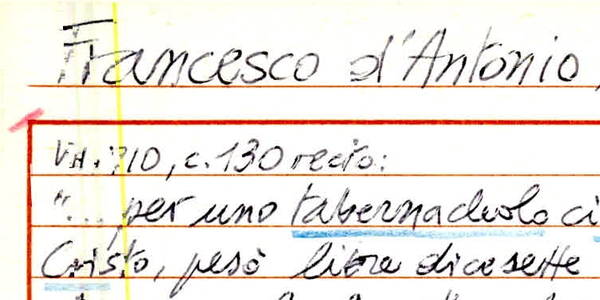 Francesco d'Antonio,
c. 130 recto:
"... per uno tabernachulo ci
Cristo, pesò libre dicesette